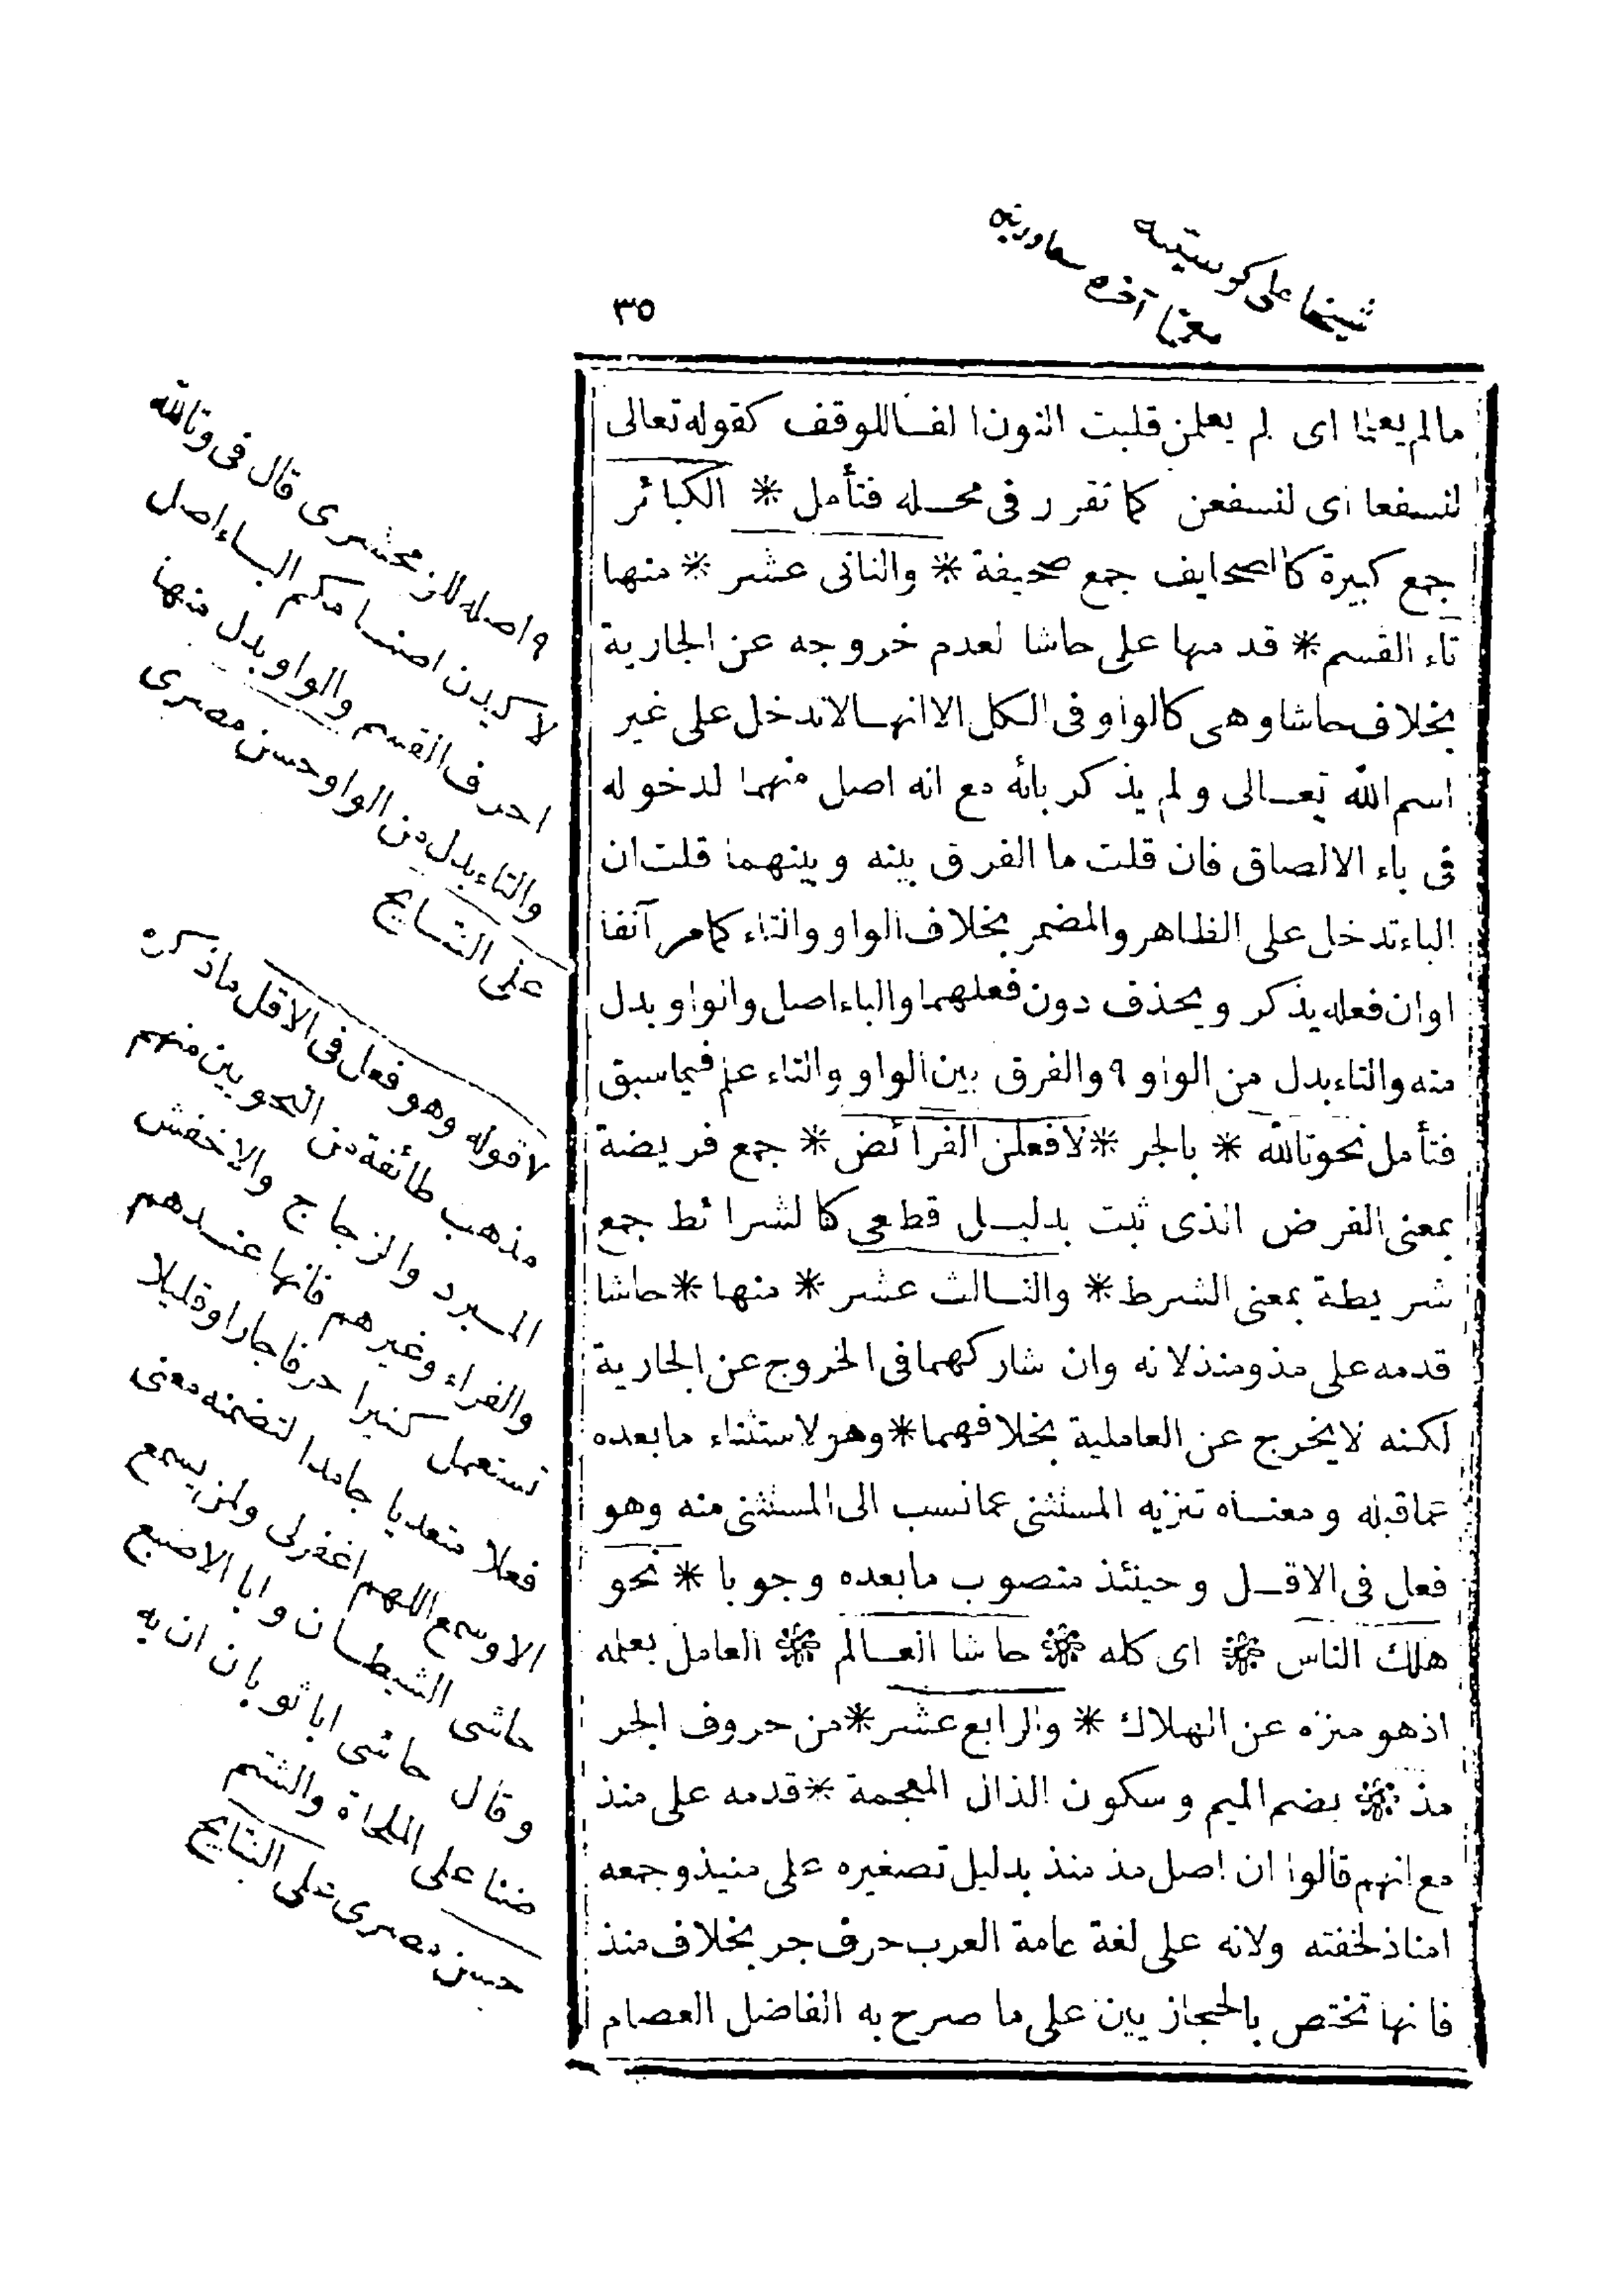 ٣٥
مالم يعلما اى لم يعلمن قلبت النون الفا للوقف كقوله تعالى
لنسفعا اى لنسفعن كما تقرر فى محله فتأمل * الكبائر
جمع كبيرة كالصحايف جمع صحيفة * والثانى عشر * منها
تاء القسم * قدمها على حاشا لعدم خروجه عن الجارية
بخلاف حاشا وهى كالواو فى الكل الا انها لاتدخل على غير
اسم الله تعالى ولم يذكر بائه مع انه اصل منهما لدخوله
فى باء الالصاق فان قلت ما الفرق بينه وبينهما قلت ان
الباء تدخل على الظاهر والمضمر بخلاف الواو والتاء كما مر آنفا
اوان فعله يذكر ويحذف دون فعلهما والباء اصل والواو بدل
منه والتاء بدل من الواو ٩ والفرق بين الواو والتاء علم فيما سبق
فتأمل نحو تالله * بالجر * لافعلن الفرائض * جمع فريضة
بمعنى الفرض الذى ثبت بدليل قطعى كالشرائط جمع
شريطة بمعنى الشرط * والثالث عشر * منها * حاشا
قدمه على مذ ومنذ لانه وان شاركهما فى الخروج عن الجارية
لكنه لايخرج عن العاملية بخلافهما * وهو لاستثناء مابعده
عما قبله ومعناه تنزيه المستثنى عما نسب الى المستثنى منه وهو
فعل فى الاقل وحينئذ منصوب مابعده وجوبا * نحو
هلك الناس * اى كله * حاشا العالم * العامل بعلمه
اذ هو منزه عن الهلاك * والرابع عشر * من حروف الجر
مذ * بضم الميم وسكون الذال المعجمة * قدمه على منذ
مع انهم قالوا ان اصل مذ منذ بدليل تصغيره على منيذ وجمعه
امناذ لخفته ولانه على لغة عامة العرب حرف جر بخلاف منذ
فانها تختص بالحجازيين على ما صرح به الفاضل العصام
٩ واصله للزمخشرى قال فى وتالله
لاكيدن اصنامكم الباء اصل
احرف القسم والواو بدل منها
والتاء بدل من الواو حسن مصرى
على النتايج
لا قوله وهو فعل فى الاقل ماذكره
مذهب طائفة من النحويين منهم
المبرد والزجاج والاخفش
والفراء وغيرهم فانها عندهم
تستعمل كثيرا حرفا جارا وقليلا
فعلا متعديا جامدا لتضمنه معنى
الا وسمع اللهم اغفرلى ولمن يسمع
حاشى الشيطان وابا الاصبع
وقال حاشى ابا ثوبان ان به
ضنا على الملحاة والشتم
حسن مصرى على النتايج